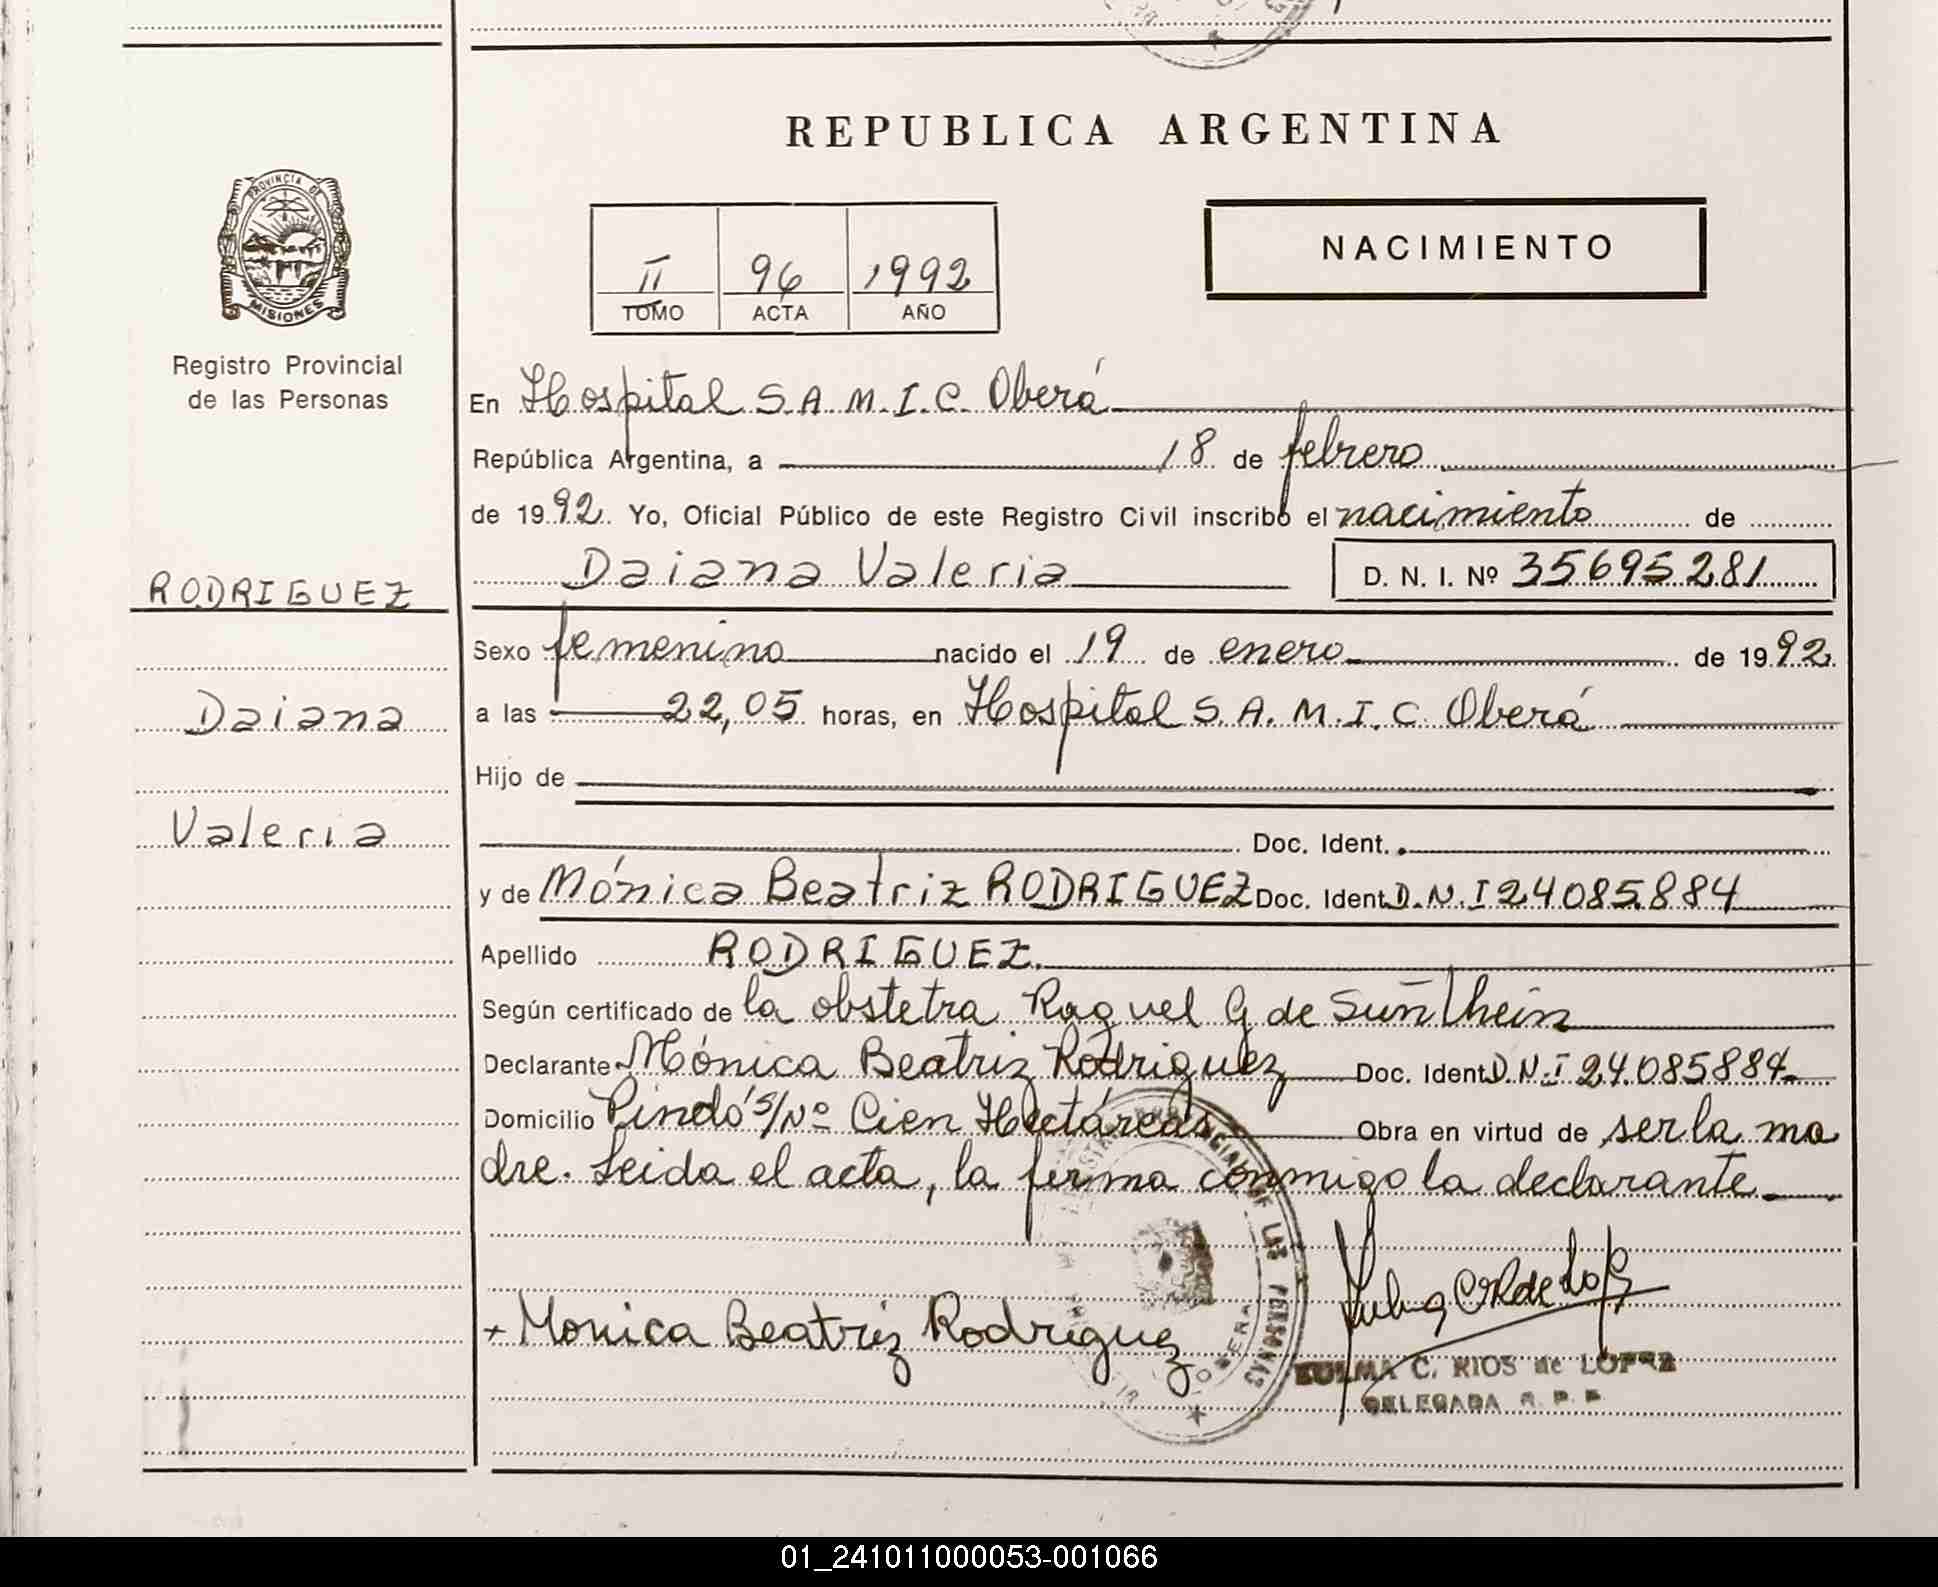 REPUBLICA ARGENTINA
PROVINCIA DE
MISIONES
Registro Provincial
de las Personas
II 96 1992
TOMO ACTA AÑO
NACIMIENTO
En Hospital S.A.M.I.C. Oberá
República Argentina, a 18 de febrero
de 1992. Yo, Oficial Público de este Registro Civil inscribo el nacimiento de
Daiana Valeria D. N. I. Nº 35695281
RODRIGUEZ
Sexo femenino nacido el 19 de enero de 1992.
Daiana
a las 22,05 horas, en Hospital S.A.M.I.C. Oberá
Hijo de
Valeria
Doc. Ident.
y de Mónica Beatriz RODRIGUEZ Doc. Ident. D.N.I 24085884
Apellido RODRIGUEZ.
Según certificado de la obstetra Raquel G de
Declarante Mónica Beatriz Rodriguez Doc. Ident. D.N.I 24.085884
Domicilio Pindó s/Nº Cien Hectáreas Obra en virtud de ser la ma
dre. Leida el acta, la firma conmigo la declarante
+ Monica Beatriz Rodriguez
ZULMA C. RIOS de LOPEZ
DELEGADA R. P. P.
OBERA
01_241011000053-001066